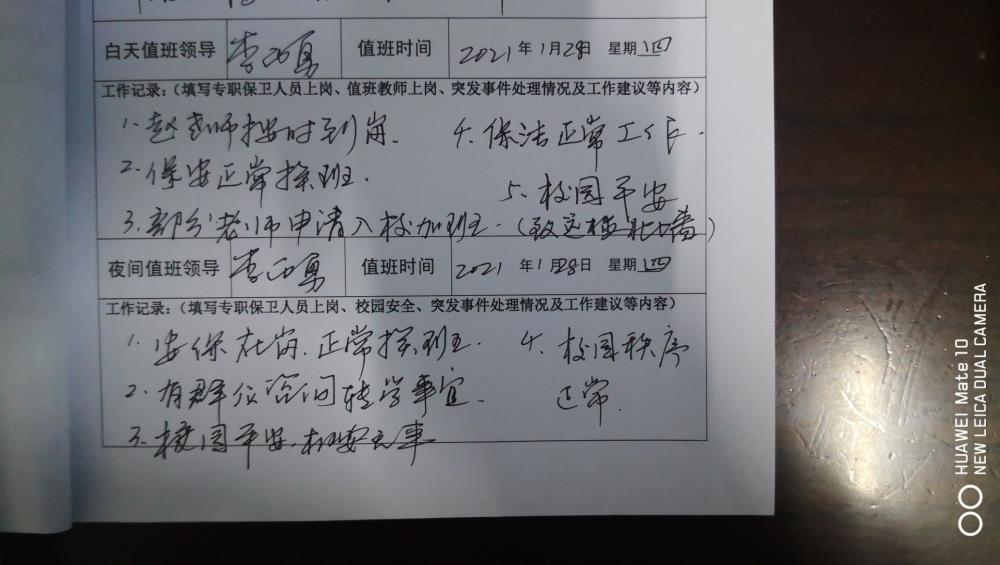 白天值班领导 李 勇 值班时间 2021年1月28日 星期四
工作记录：（填写专职保卫人员上岗、值班教师上岗、突发事件处理情况及工作建议等内容）
1. 赵老师按时到岗. 4. 保洁正常工作.
2. 保安正常接班. 5. 校园平安
3. 部分老师申请入校加班.
夜间值班领导 李 勇 值班时间 2021年1月28日 星期四
工作记录：（填写专职保卫人员上岗、校园安全、突发事件处理情况及工作建议等内容）
1. 安保在岗. 正常接班. 4. 校园秩序
2. 有群众咨询转学事宜. 正常.
3. 校园平安. 无事
HUAWEI Mate 10
NEW LEICA DUAL CAMERA